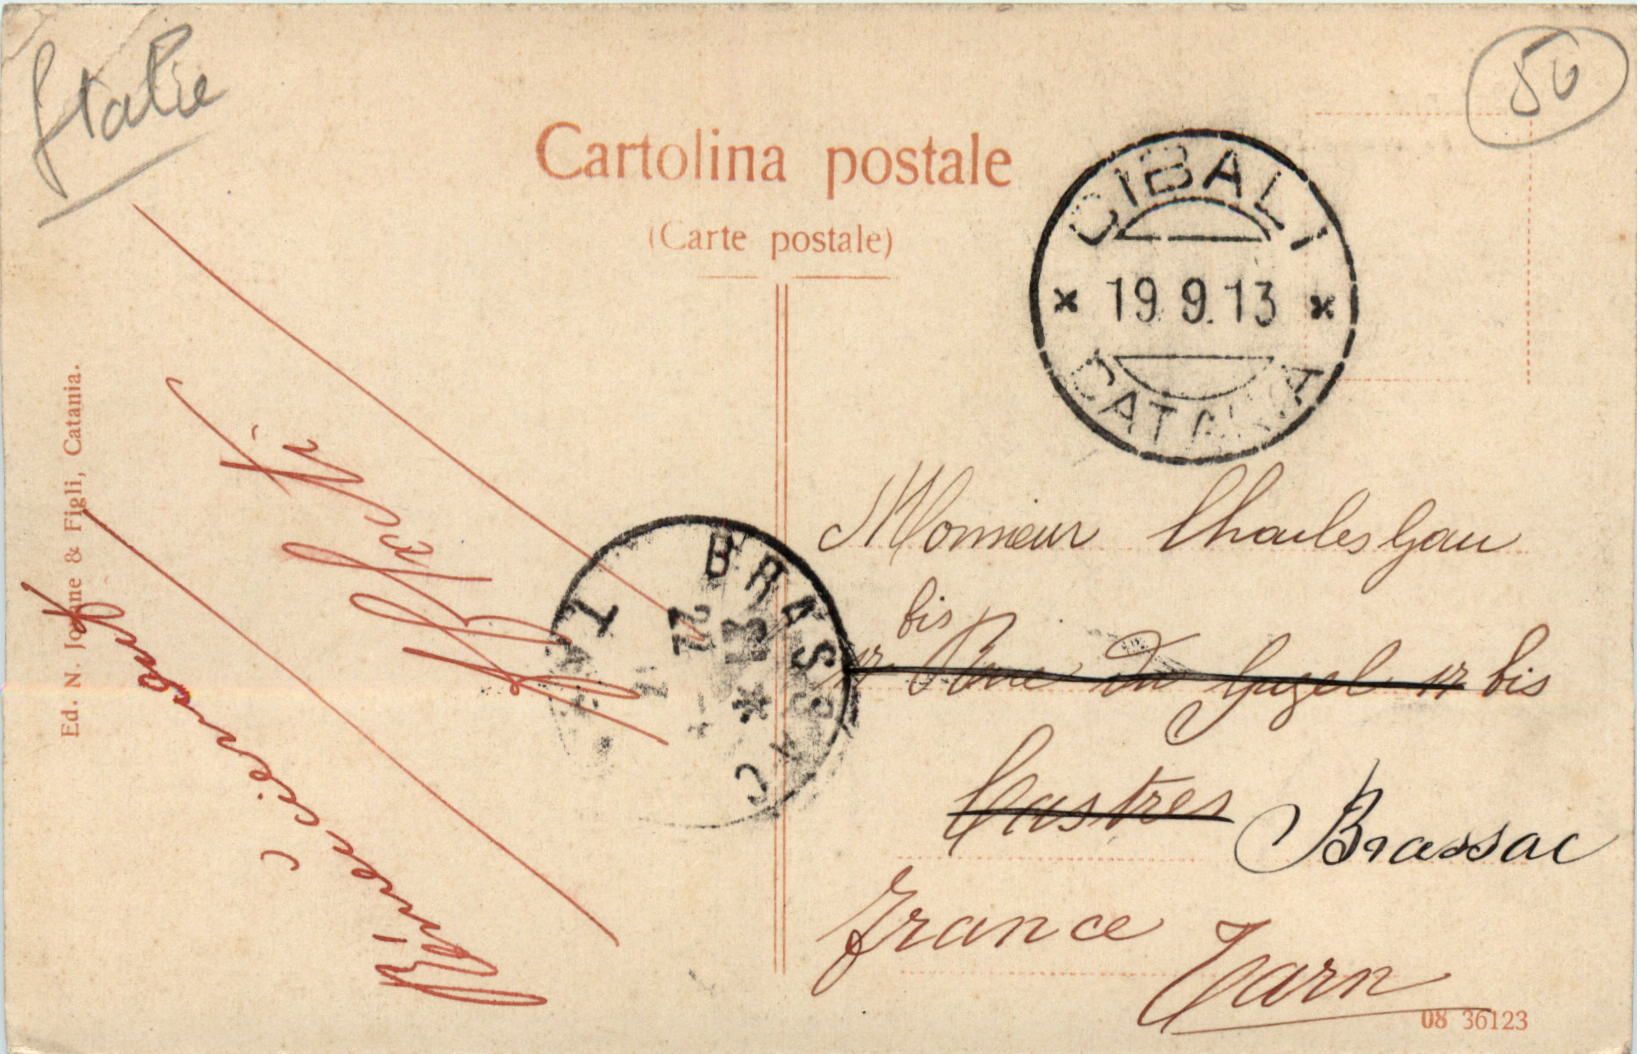 Italie
50
Cartolina postale
(Carte postale)
CIBALI
19.9.13
CATANIA
Ed. N. Jo ne & Figli, Catania.
BRASSAC
Monsieur Charles Gau
bis
Rue du Guzel 17 bis
Castres Brassac
France
Tarn
08 36123